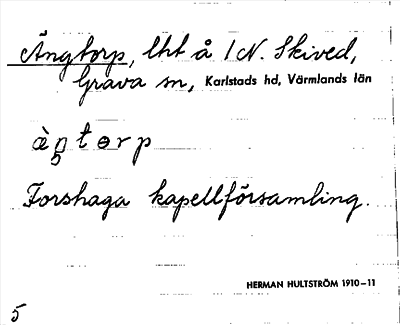 Ängtorp, lht å 1 N. Skived,
Grava sn, Karlstads hd, Värmlands län
àŋtɵrp
Forshaga kapellförsamling.
HERMAN HULTSTRÖM 1910–11
5